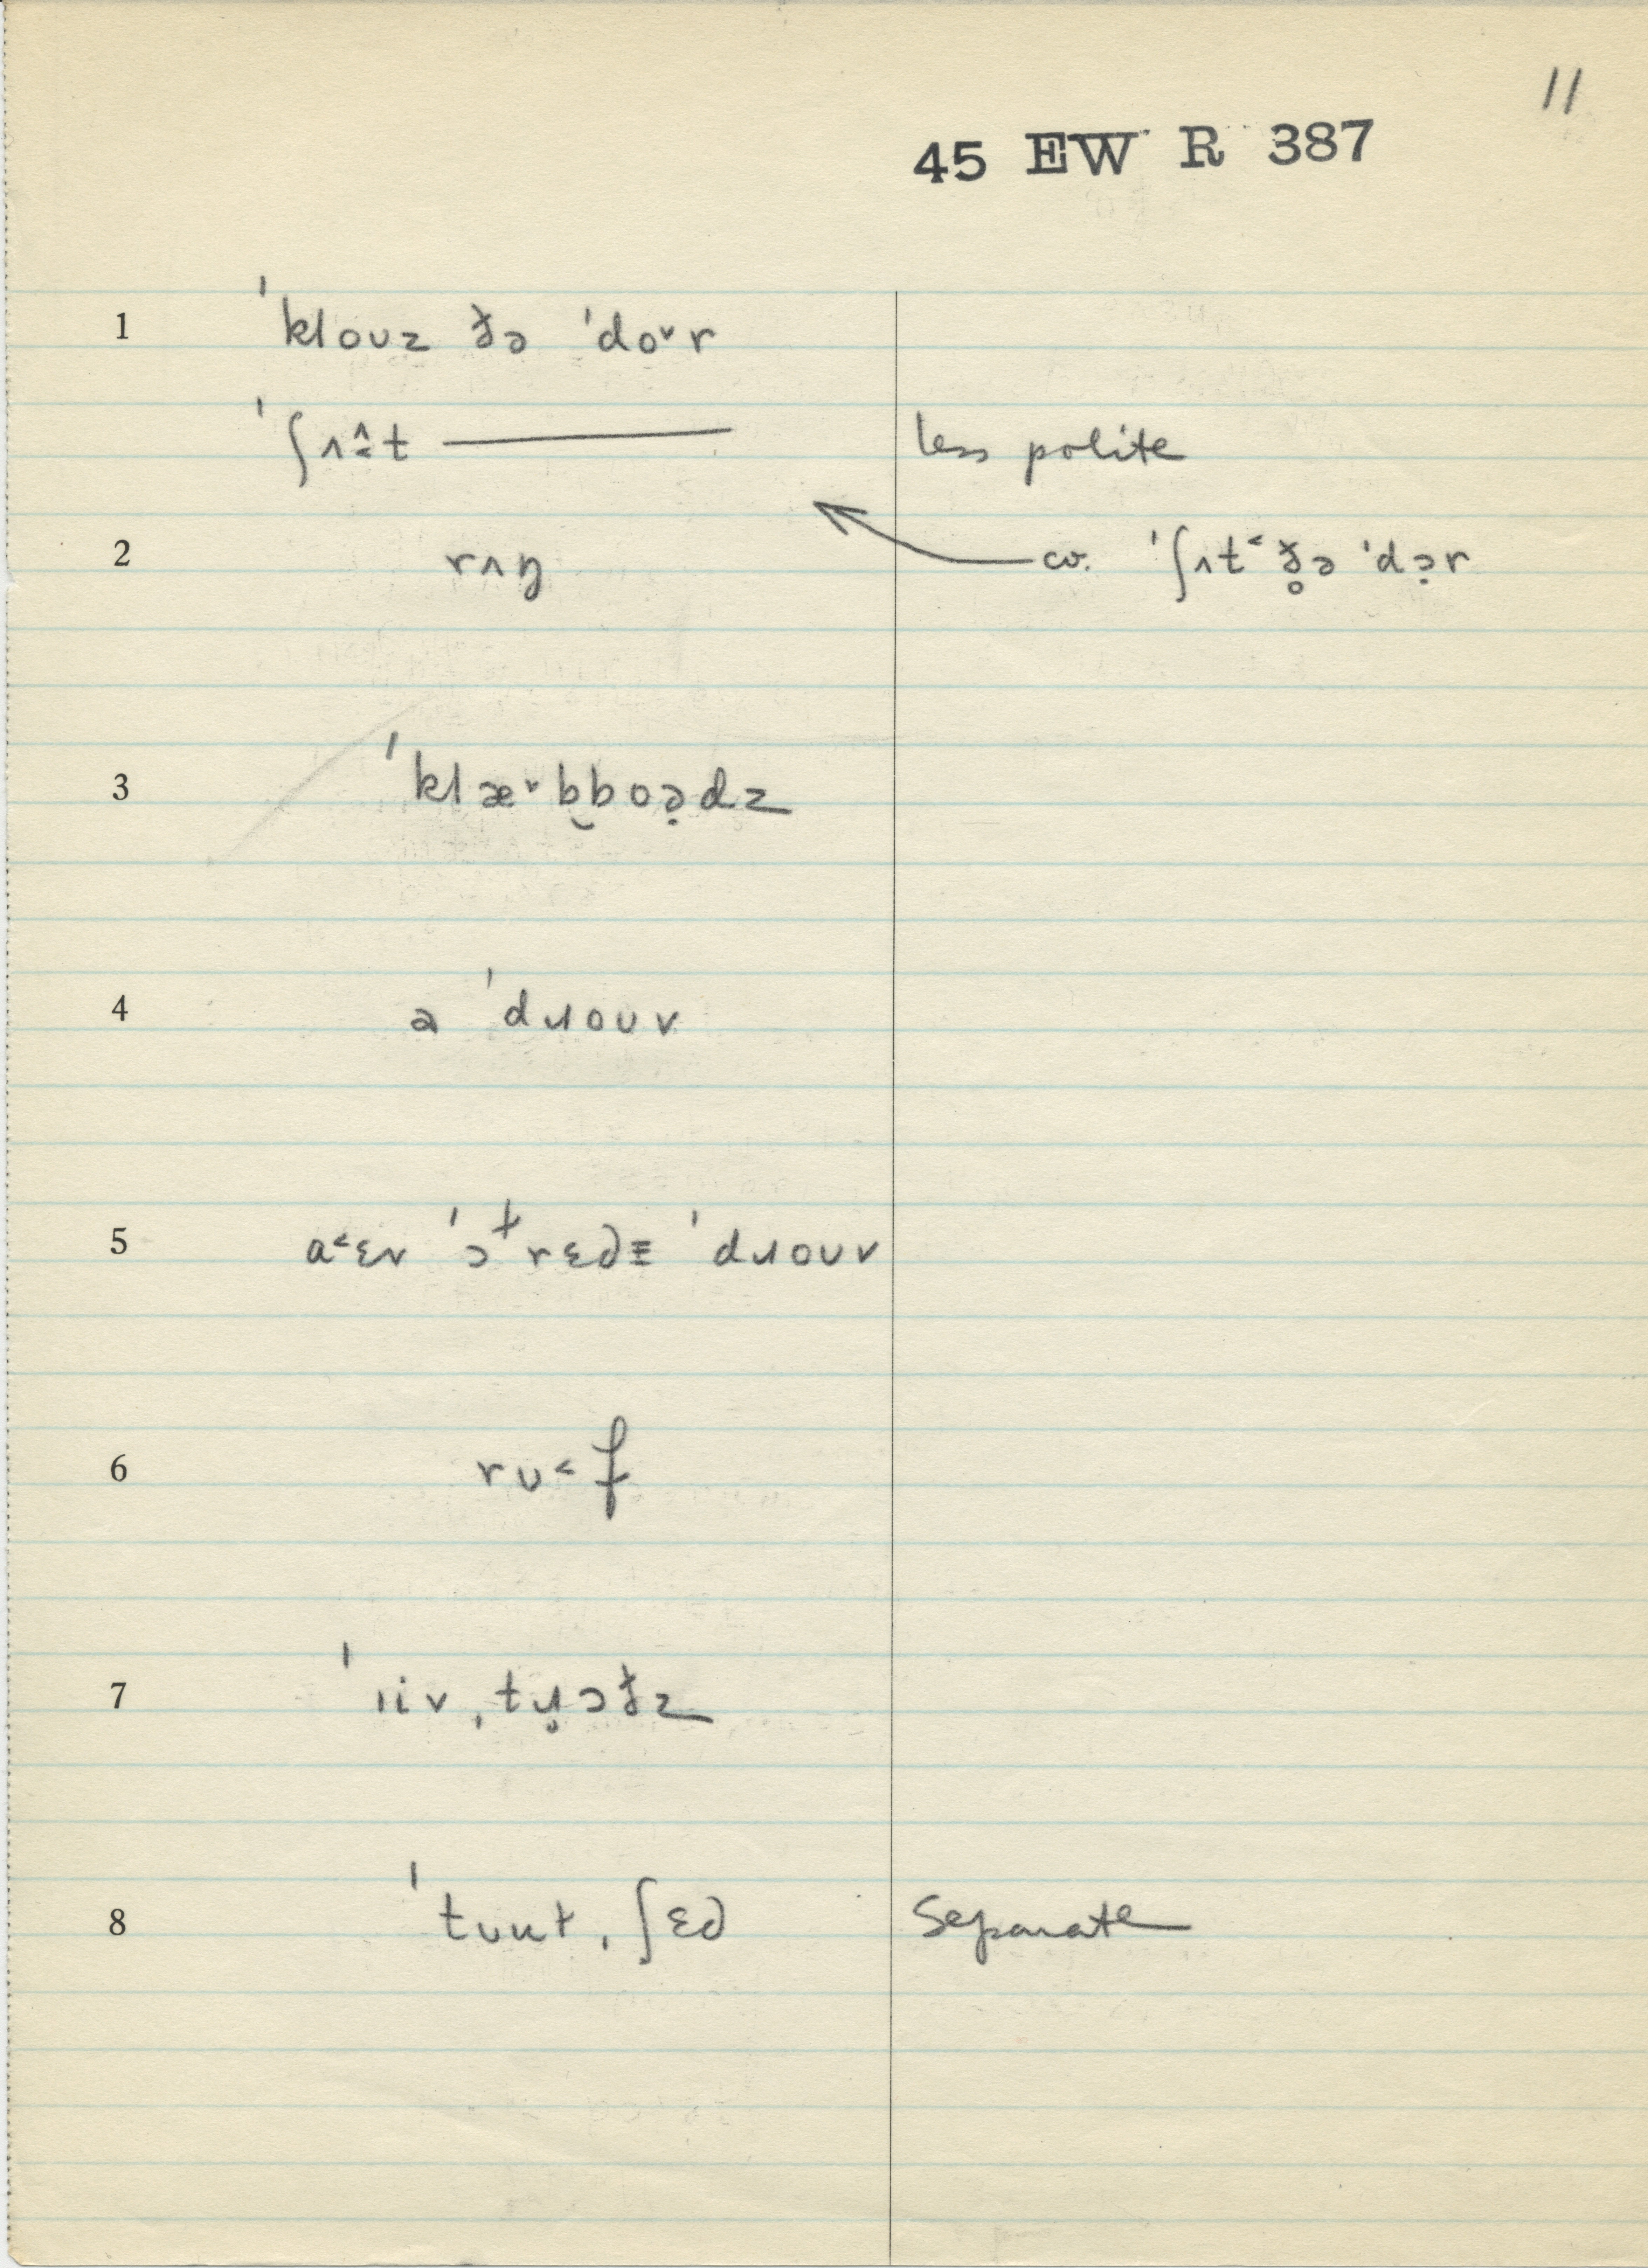 11
45 EW R 387
1 ˈkloʊz ðə ˈdo˅r
ˈʃʌ̂˂t ———— less polite
2 rʌŋ cv. ˈʃʌt˂ ð̥ə ˈdə̣r
3 ˈklæ˅b̬boə̣dz
4 ə ˈdɹoʊv
5 a˂ɛv ˈɔɫrɛd≡ ˈdɹoʊv
6 rʊ˂f
7 ˈiiv ˌtɹ̣ɔðz
8 ˈtuuɫ ˌʃɛd separate